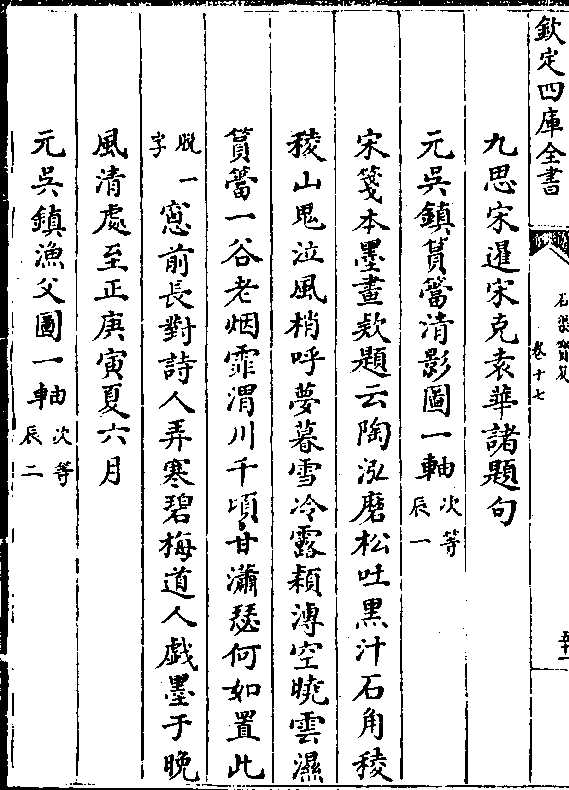 欽定四庫全書
石渠寶笈
卷十七
九思宋暹宋克袁華諸題句
元吳鎮篔簹清影圖一軸次等辰一
宋箋本墨畫款題云陶泓磨松吐黑汁石角稜
稜山鬼泣風梢呼夢暮雪冷露穎漙空曉雲濕
篔簹一谷老烟霏渭川千頃甘瀟瑟何如置此
脫字一窻前長對詩人弄寒碧梅道人戯墨于晚
風清處至正庚寅夏六月
元吳鎮漁父圖一軸次等辰二